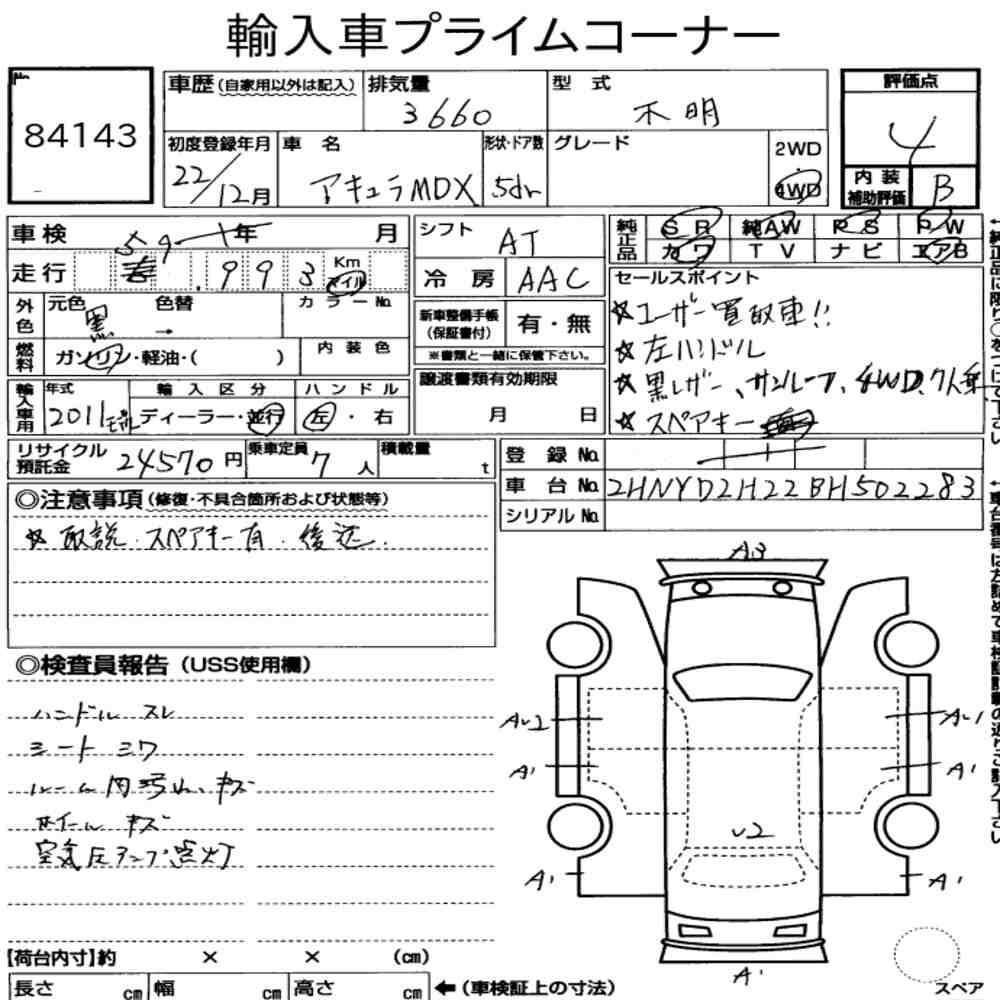 輸入車プライムコーナー
No.
84143
車歴(自家用以外は記入)
排気量
3660
型 式
不明
評価点
4
初度登録年月
22/12月
車 名
アキュラMDX
形状・ドア数
5dr
グレード
2WD
・
4WD
内装
補助評価
B
車検
年
月
走行
993
Km
マイル
シフト
AT
冷房
AAC
純正品
SR
純AW
PS
PW
カワ
TV
ナビ
エアB
外色
元色
黒
色替
→
カラーNo.
燃料
ガソリン・軽油・( )
内装色
新車整備手帳
(保証書付)
有・無
※書類と一緒に保管下さい。
セールスポイント
☆ユーザー買取車!!
☆左ハンドル
☆黒レザー、サンルーフ、4WD、7人乗
☆スペアキー
輸入車用
年式
2011モデル
輸入区分
ディーラー・並行
ハンドル
左・右
譲渡書類有効期限
月 日
リサイクル
預託金
24570円
乗車定員
7人
積載量
t
登録No.
車台No.
2HNYD2H22BH502283
シリアルNo.
◎注意事項(修復・不具合箇所および状態等)
☆取説.スペアキー有.後送.
◎検査員報告(USS使用欄)
ハンドル スレ
シート シワ
ルーム内汚れ、キズ
ホイール キズ
空気圧ランプ点灯
A3
AU2
AU1
A1
A1
U2
A1
A1
A1
【荷台内寸】約 × × (cm)
長さ cm
幅 cm
高さ cm
←(車検証上の寸法)
スペア